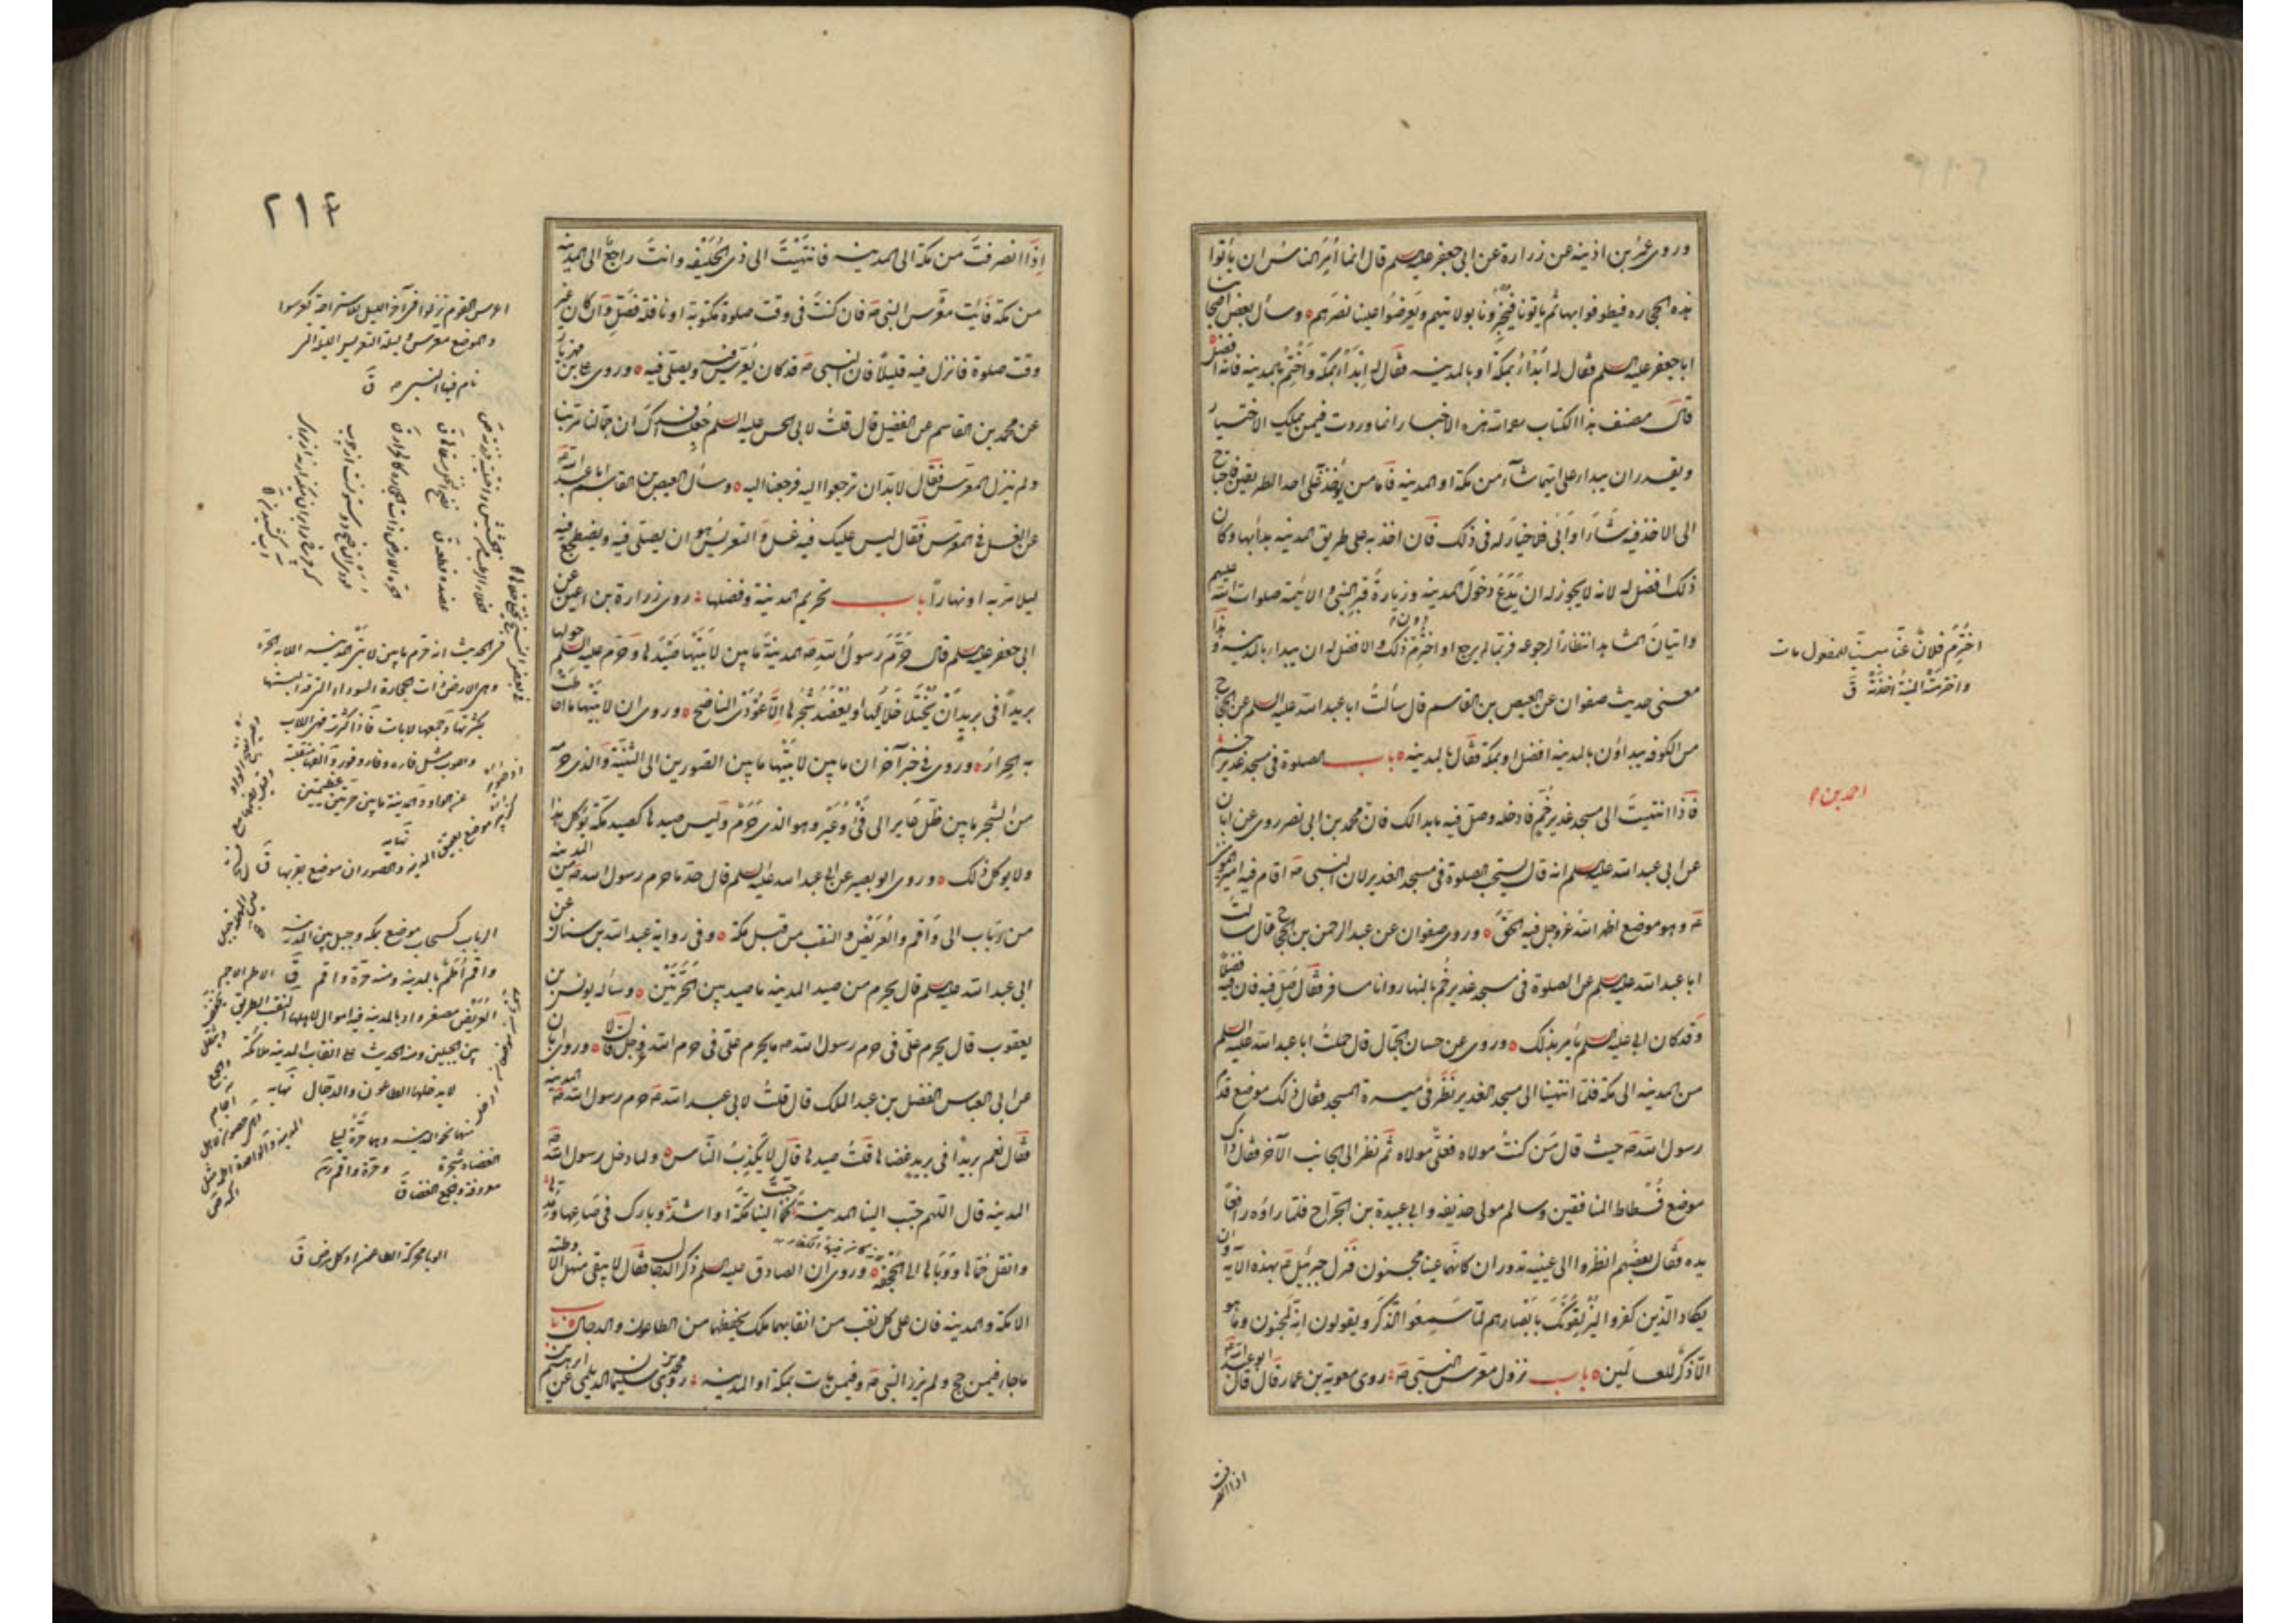 وروى عمر بن اذينه عن زرارة عن ابى جعفر عليه السلم قال انما أُمِرَ الناس ان يأتوا
هذه الحجاره فيطوفوا بها ثم ياتونا فيُخبِرونا بولايتهم ويَعرِضُوا علينا نصرهم ٥ وسأل بعض اصحابنا
ابا جعفر عليه السلم فقال له ابْدَأُ بمكة او بالمدينه فقال له ابْدَأْ بمكة واخْتِمْ بالمدينه فانه افضل
قال مصنف هذا الكتاب رحمه الله هذه الاخبار انما وردت فيمن يملك الاختيار
ويقدر ان يبدأ على ايهما شآء من مكة او المدينه فاما من يُؤخَذ على احد الطريقين فاحتاج
الى الاخذ فيه شَآءَ او اَبَى فلا خيار له فى ذلك فان اخذ به على طريق المدينه بدأ بها وكان
ذلك افضل له لانه لا يجوز له ان يَدَعَ دخول المدينه وزيارةَ قبر النبى والائمة صلوات الله عليهم
واتيانَ المشاهد انتظاراً لرجوعه فربما لم يرجع او اختُرِمَ دون ذلك والافضل له ان يبدأ بالمدينه وهذا
معنى حديث صفوان عن العيص بن القاسم قال سألتُ ابا عبد الله عليه السلم عن الحاج
من الكوفه يبداؤن بالمدينه افضل او بمكة فقال بالمدينه ٥ باب الصلوة فى مسجد غدير خم
فاذا انتهيتَ الى مسجد غدير خُمّ فادخله وصل فيه ما بدا لك فان محمد بن ابى نصر روى عن ابان
عن ابى عبد الله عليه السلم انه قال يستحب الصلوة فى مسجد الغدير لان النبى ص اقام فيه امير المؤمنين
ع وهو موضع اظهر الله عز وجل فيه الحقَّ ٥ وروى صفوان عن عبد الرحمن بن الحجاج قال سألت
ابا عبد الله عليه السلم عن الصلوة فى مسجد غدير خُم بالنهار وانا مسافر فقال صَلِّ فيه فان فيه فضلاً
وقد كان ابى عليه السلم يأمر بذلك ٥ وروى عن حسان الجمال قال حملتُ ابا عبد الله عليه السلم
من المدينه الى مكة فلما انتهينا الى مسجد الغدير نَظَرَ فى ميسرة المسجد فقال ذلك موضع قدم
رسول الله ص حيث قال مَن كنتُ مولاه فعلىٌّ مولاه ثم نظر الى الجانب الآخر فقال ذاك
موضع فُسطاط المنافقين وسالم مولى حذيفه وابى عبيدة بن الجراح فلما راَوْه رافعاً
يده فقال بعضهم انظروا الى عينيه تدوران كانهما عينا مجنون فنزل جبرئيل ع بهذه الآية وان
يكاد الذين كفروا ليُزْلِقُونَكَ بابصارهم لمّا سَمِعُوا الذكرَ ويقولون انه لمجنون وما هو
الّا ذكرٌ للعالمين ٥ باب نزول معرس النبى ص روى معوية بن عمار قال قال ابو عبد الله ع
اذا انصرفت
اختُرِمَ فلانٌ عنّا مبنيّاً للمفعول مات
واخترمَتْه المنيّةُ اخذَتْه ق
احمد بن
٢١٤
اِذا انصرفتَ من مكة الى المدينه فانتهيْتَ الى ذى الحُلَيْفه وانتَ راجعٌ الى المدينه
من مكة فَائْتِ معرّس النبى ص فان كنتَ فى وقت صلوة مكتوبة او نافلة فصَلِّ وان كان غير
وقت صلوة فانزل فيه قليلاً فان النبى ص قد كان يُعَرِّس فيه ويصلى فيه ٥ وروى على بن مهزيار
عن محمد بن القاسم عن الفضيل قال قلتُ لابى الحسن عليه السلم جُعِلتُ فداك ان جَمّالنا مرّ بنا
ولم ينزل المعرّس فقال لا بدّ ان ترجعوا اليه فرجعنا اليه ٥ وسأل العيص بن القاسم ابا عبد الله ع
عن الغسل فى المعرّس فقال ليس عليك فيه غسل والتعريس هو ان يصلى فيه ويضطجع فيه
ليلا مرّ به او نهاراً باب تحريم المدينة وفضلها روى زرارة بن اعين عن
ابى جعفر عليه السلم قال حَرَّمَ رسول الله ص المدينةَ ما بين لابتيها صَيْدَها وحَرّم عليه السلم حولها
بريداً فى بريد ان يُختلا خَلاها او يُعْضَدَ شجرها الّا عُودَى الناضح ٥ وروى ان لابتيها ما احاطت
به الحرار ٥ وروى فى خبر آخر ان ما بين لابتيها ما بين الصورين الى الثنيّة والذى حرّمه
من الشجر ما بين ظلّ عاير الى فَىْءِ وُعَيْر وهو الذى حَرَّمَ وليس صيدها كصيد مكة يُؤكل هذا
ولا يوكل ذلك ٥ وروى ابو بصير عن ابى عبد الله عليه السلم قال حد ما حرم رسول الله ص من المدينه
من رباب الى واقم والعُرَيْض والنقب من قبل مكة ٥ وفى رواية عبد الله بن سنان عن
ابى عبد الله عليه السلم قال يحرم من صيد المدينه ما صيد بين الحَرَّتَيْن ٥ وسأله يونس بن
يعقوب قال يحرم علىّ فى حرم رسول الله ص ما يحرم علىّ فى حرم الله عز وجل قال لا ٥ وروى ابان
عن ابى العباس الفضل بن عبد الملك قال قلتُ لابى عبد الله ع حرم رسول الله ص المدينه
فقال نعم بريداً فى بريد غضاها قلتُ صيدها قال لا يَكذِبُ النّاس ٥ ولما دخل رسول الله ص
المدينه قال اللهم حبّب الينا المدينة كما حبّبتَ الينا مكّة او اشدّ وبارك فى صاعها ومُدّها
وانقل حُمّاها ووَباها الى الجُحْفَة ٥ وروى ان الصادق عليه السلم ذكر الدجال فقال لا يبقى منهل الا وطئه
الا مكة والمدينه فان على كل نقب من انقابهما ملك يحفظهما من الطاعون والدجال ٥ باب
ما جاء فيمن حج ولم يزر النبى ص وفيمن مات بمكة او المدينه روى محمد بن سليمان الديلمى عن ابرهيم بن
اعرس القوم نزلوا فى آخر الليل للاستراحة كعرسوا
والموضع معرس وليلة التعريس الليلة التى
نام فيها النبى ص ق
فى الحديث انه حرّم ما بين لابتى المدينه اللابة الحرّة
وهى الارض ذات الحجارة السوداء التى قد البستها
بكثرتها وجمعها لابات فاذا كثرت فهى اللاب
واللوب مثل قاره وقار وقور والفها منقلبة
عن الواو والمدينة ما بين حرّتين عظيمتين
نهايه
الرباب كسحاب موضع بمكه وجبل بين المدينه
واقم اُطُم بالمدينه ومنه حرّة واقم ق
العُرَيْض مصغر واد بالمدينه فيه اموال لاهلها النقب الطريق
بين الجبلين ومنه الحديث على انقاب المدينه ملائكة
لا يدخلها الطاعون والدجال نهايه
الوبا محركة الطاعون او كل مرض ق